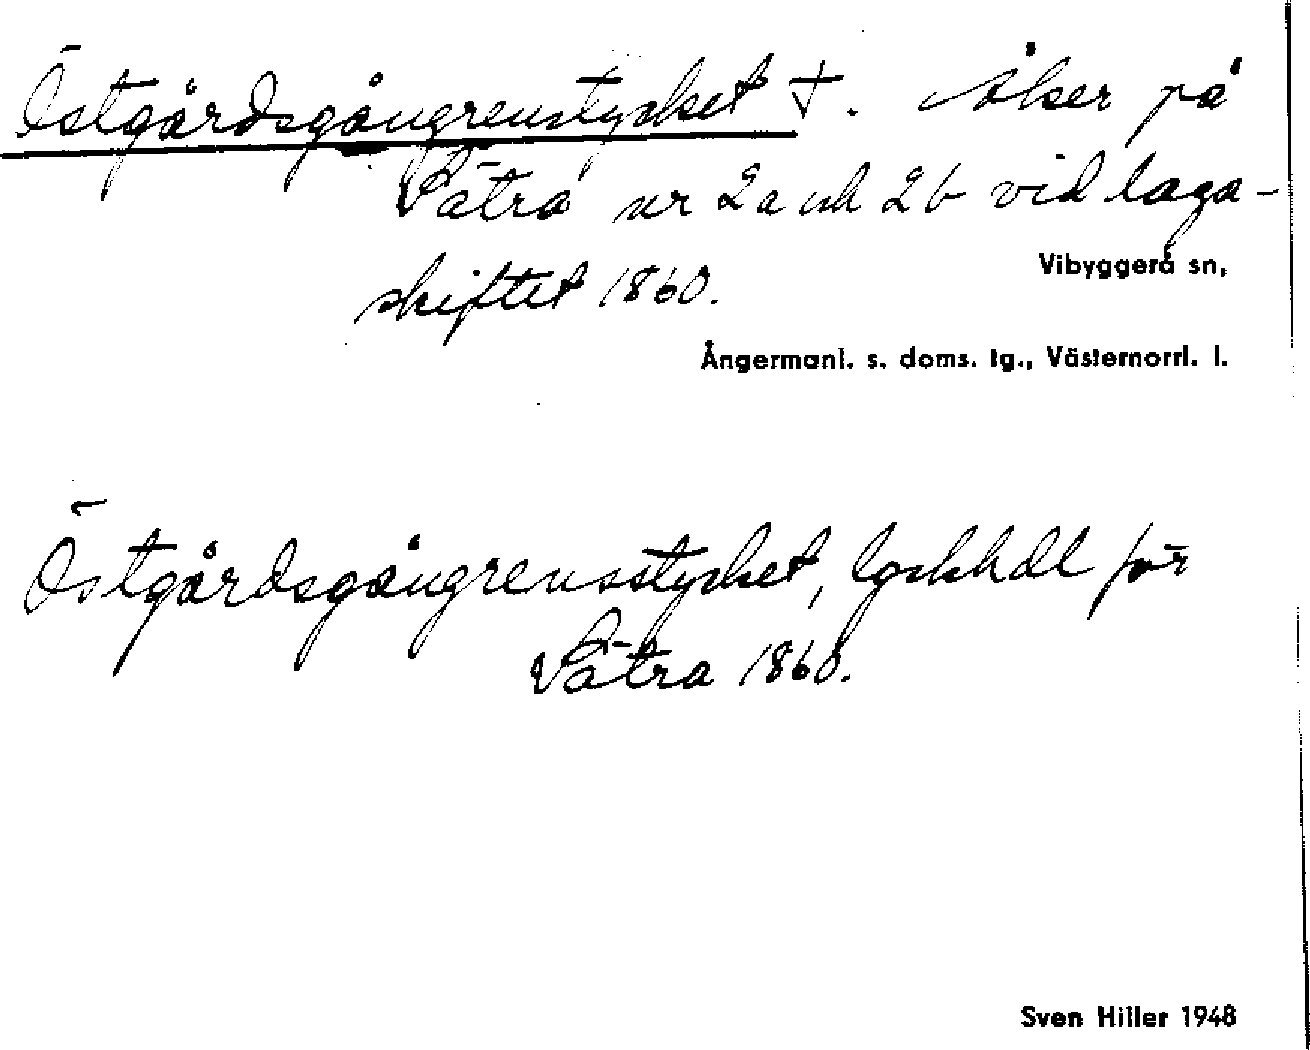 Östgårdsgångrenstycket †. Åker på
Sätra nr 2a och 2b vid laga-
skiftet 1860.
Vibyggerå sn,
Ångermanl. s. doms. tg., Västernorrl. l.
Östgårdsgångrensstycket, lgskhdl för
Sätra 1860.
Sven Hiller 1948